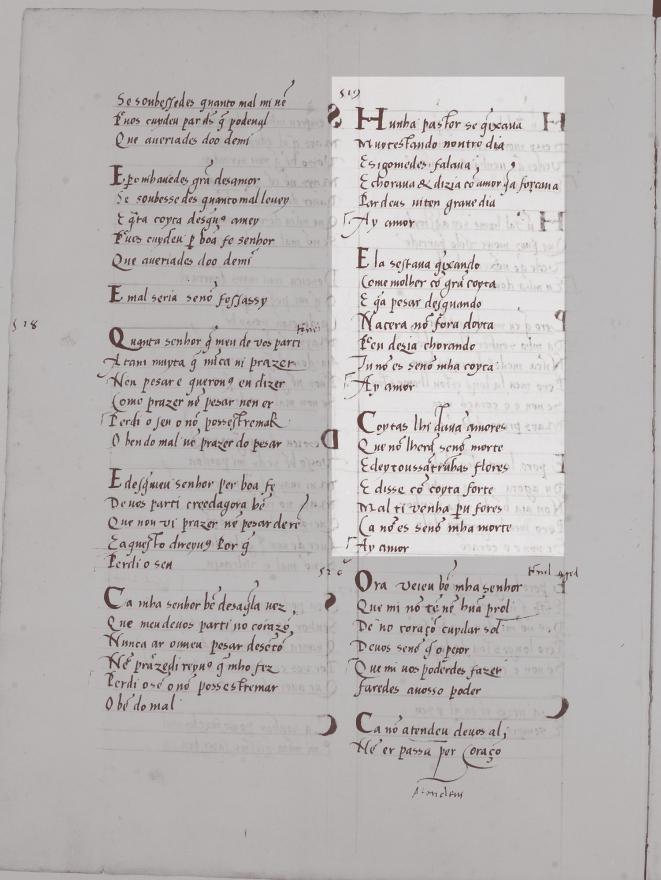 Se soubessedes quanto mal mi uẽ
E uos cuydeu par đs q̃ podenyl
Que aueriades doo demi
E pombauedes grã desamor
Se soubessedes quanto mal leuey
E q̃ta coyta
Que aueriades doo demi
E mal seria senõ fossassy
518
Quanta senhor q̃ meu de uos parti
Atam muyta q̃ nũca ui prazer
Nen pesar e
Como prazer nẽ pesar nen er
Perdi o sen o nõ possestremar
O ben do mal nẽ prazer do pesar
E desq̃meu senhor per boa fe
De uos parti creedagora bẽ
Que non ui prazer nẽ pesar de
Eaquesto Por q̃
Perdi o sen
Ca mha senhor bẽ desaq̃la uez
Que meu deuos parti no coraçõ
Nunca ar omeu pesar desetõ
Nẽ prazer q̃ mho fez
Perdi o sẽ o nõ possestremar
O bẽ do mal
519
Hunha pastor se q̃ixaua
Muytestando noutro dia
E sigomedes falaua
E choraua & dizia cõ amor q̃a forçaua
Par deus uiten graue dia
Ay amor
Ela sestaua q̃ixando
Come molher cõ grã coyta
E q̃a pesar desquando
Nacera nõ fora doyta
Peu dezia chorando
Tu nõ es senõ mha coyta
Ay amor
Coytas lhi dauã amores
Que nõ lherã senõ morte
E deytoussantrũhas flores
E disse cõ coyta forte
Mal ti uenha pu fores
Ca nõ es senõ mha morte
Ay amor
520
Ora ueieu bẽ mha senhor
Que mi nõ tẽ nẽ hũa prol
De no coraçõ cuydar sol
Deuos senõ q̃ o peior
Que mi uos poderdes fazer
Faredes auosso poder
Ca nõ atendeu deuos al
Nẽ er passa per Coraçõ